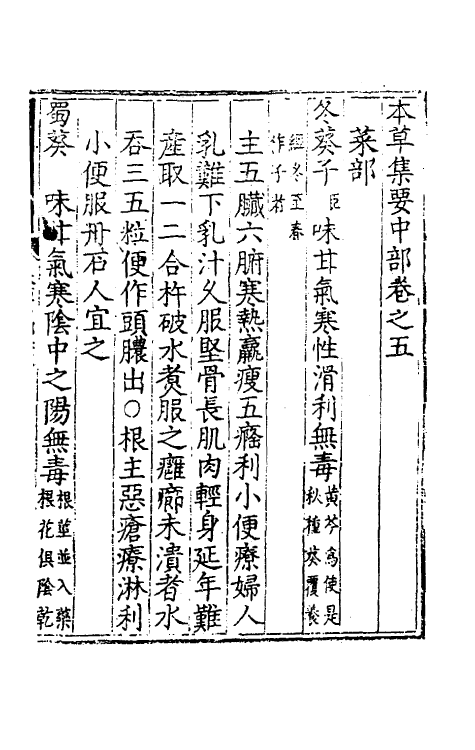 本草集要中部卷之五
菜部
冬葵子 臣 味甘氣寒性滑利無毒 黄芩為使是秋種葵覆養
經冬至春作子者
主五臟六腑寒熱羸瘦五癃利小便療婦人
乳難下乳汁乆服堅骨長肌肉輕身延年難
産取一二合杵破水煑服之癰癤未潰者水
吞三五粒便作頭膿出○根主惡瘡療淋利
小便服丹石人宜之
蜀葵 味甘氣寒陰中之陽無毒 根莖並入藥根花俱陰乾